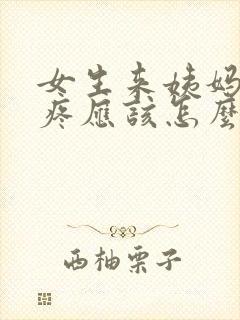 女生来姨妈
疼应该怎麼
西柚栗子